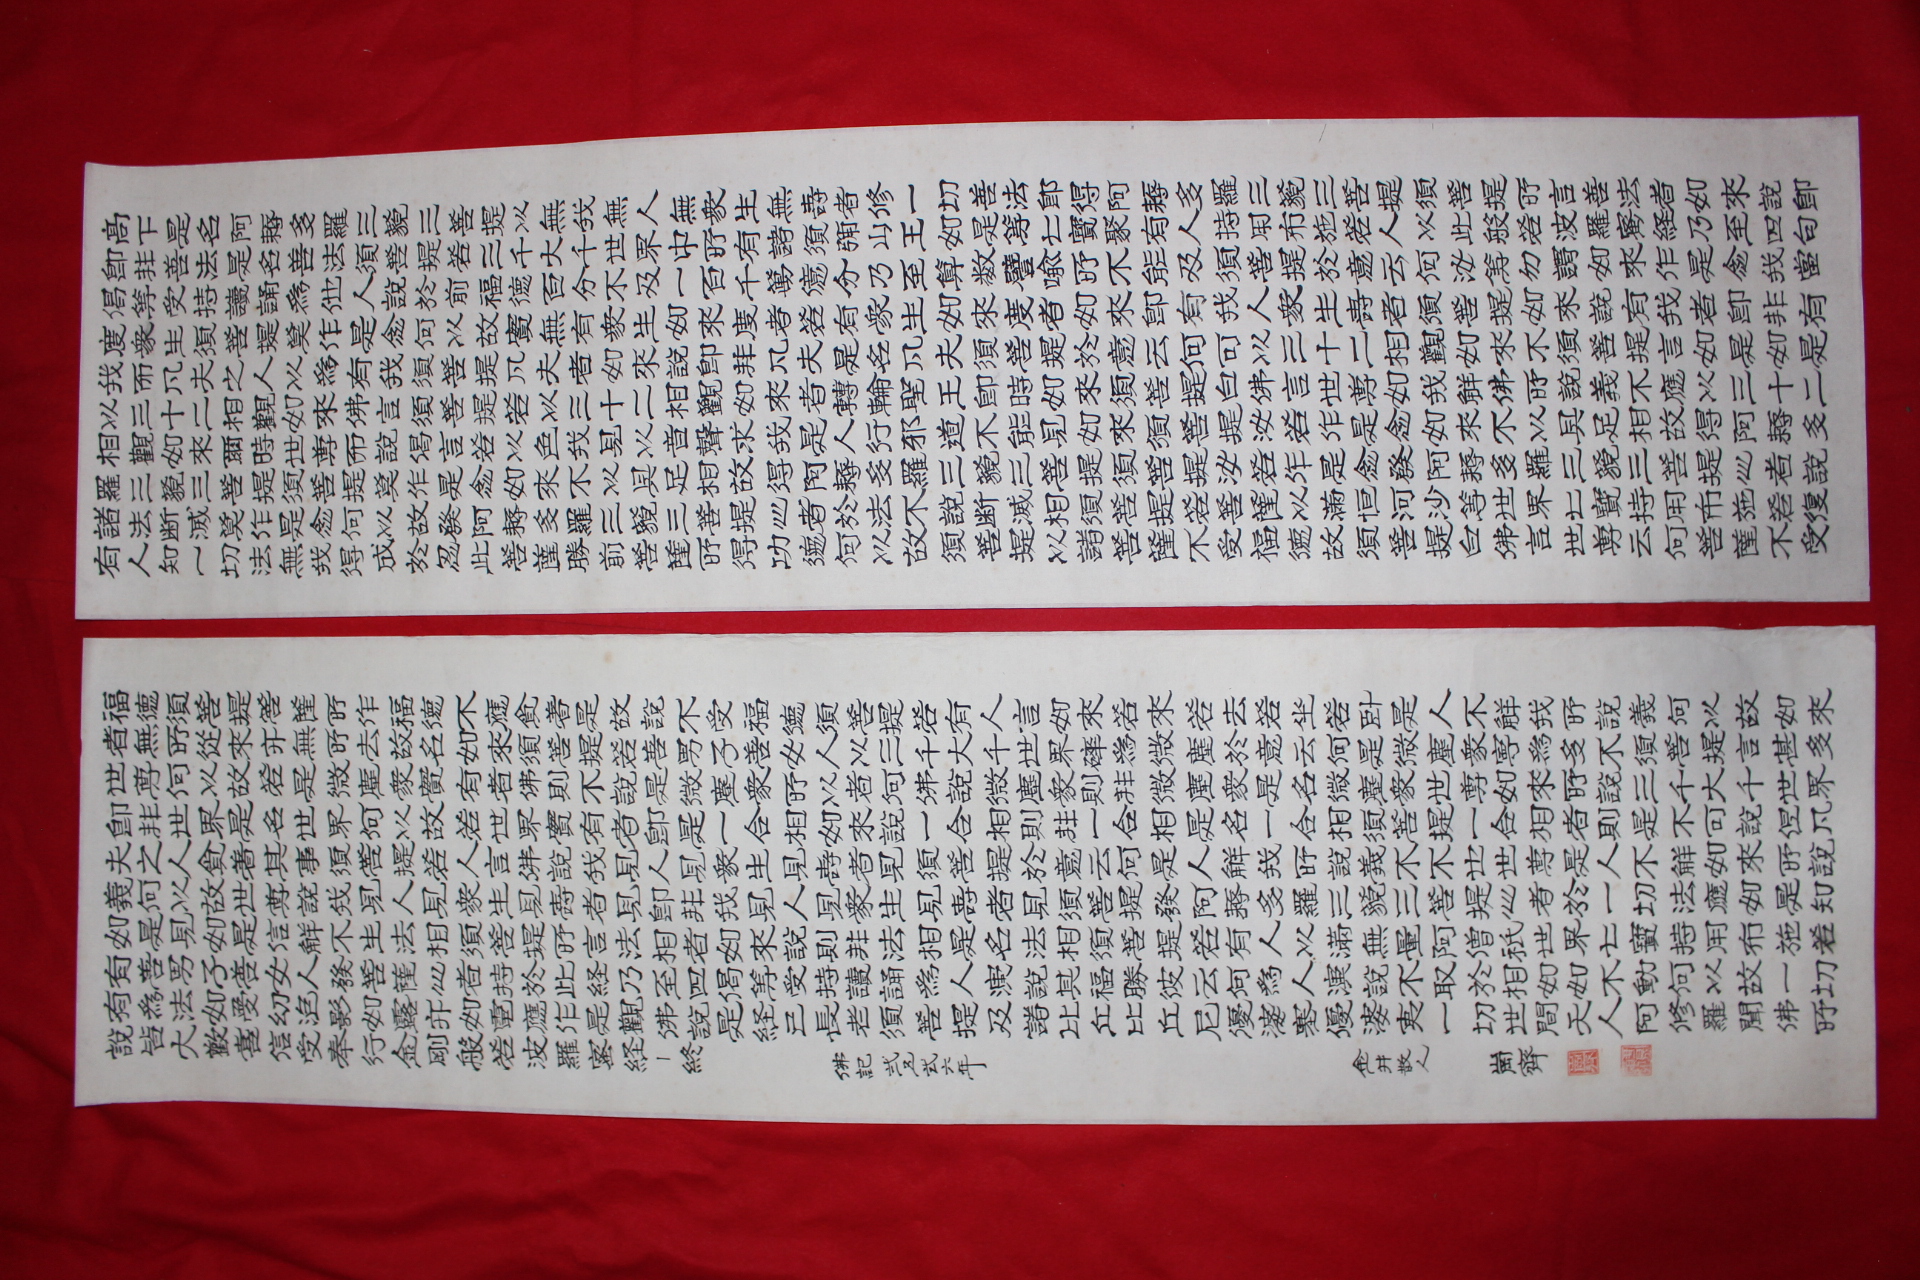 高下是名阿耨多羅三藐三菩提以無我無人無衆生無壽者修一切善法即得阿耨多羅三藐三菩提須菩提所言善法者如來說即
即非善法是名善法須菩提若三千大千世界中所有諸須弥山王如是等七寶聚有人持用布施若人以此般若波羅蜜経乃至四句
偈等受持讀誦為他人說於前福德百分不及一百千萬億分乃至算数譬喻所不能及須菩提於意云何汝等勿謂如來作是念我當
度衆生須菩提莫作是念何以故實無有衆生如來度者若有衆生如來度者如來即有我人衆生壽者須菩提如來說有我者即非有
我而凡夫之人以為有我須菩提凡夫者如來說即非凡夫是名凡夫須菩提於意云何可以三十二相觀如來不須菩提言如是如是
以三十二相觀如來佛言須菩提若以三十二相觀如來者轉輪聖王即時如來須菩提白佛言世尊如我解佛所說義不應以三十二
相觀如來爾時世尊而說偈言若以色我見以音聲求我是人行邪道不能見如來須菩提汝若作是念如來不以具足相故得阿耨多
羅三藐三菩提須菩提莫作是念如來不以具足相故得阿耨多羅三藐三菩提須菩提汝若作是念發阿耨多羅三藐三菩提心者說
諸法断滅莫作是念何以故發阿耨多羅三藐三菩提心者於法不說断滅相須菩提若菩薩以滿恒河沙等世界七寶持用布施若復
有人知一切法無我得成於忍此菩薩勝前菩薩所得功德何以故須菩提以諸菩薩不受福德故須菩提白佛言世尊云何菩薩不受
福德須菩提菩薩所作福德不應貪着是故說不受福德須菩提若有人言如來若來若去若坐若臥是人不解我所說義何以故如來
者無所從來亦無所去故名如來須菩提若善男子善女人以三千大千世界碎為微塵於意云何是微塵衆寧為多不須菩提言甚多
世尊何以故若是微塵衆實有者佛則不說是微塵衆所以者何佛說微塵衆則非微塵衆是名微塵衆世尊如來所說三千大千世界
即非世界是名世界何以故若世界實有者即是一合相如來說一合相則非一合相是名一合相須菩提一合相者則是不可說但凡
夫之人貪着其事須菩提若人言佛說我見人見衆生見壽者見須菩提於意云何是人解我所說義不不也世尊是人不解如來所說
義何以故世尊說我見人見衆生見壽者見即非我見人見衆生見壽者見須菩提發阿耨多羅三藐三菩提心者於一切法應如是知
如是見如是信解不生法相須菩提所言法相者如來說則非法相是名法相須菩提若有人以滿無量阿僧祇世界七寶持用布施若
有善男子善女人發菩薩心者持於此経乃至四偈等受持讀誦為人演說其福勝彼云何為人演說不取於相如如不動何以故一切
有為法如夢幻泡影如露亦如電應作是觀佛說是経已長老須菩提及諸比丘比丘尼優婆塞優婆夷一切世間天人阿修羅聞佛所
說皆大歡喜信受奉行金剛般若波羅蜜経 終
佛記弍五弍六年 金井散人 尚齊